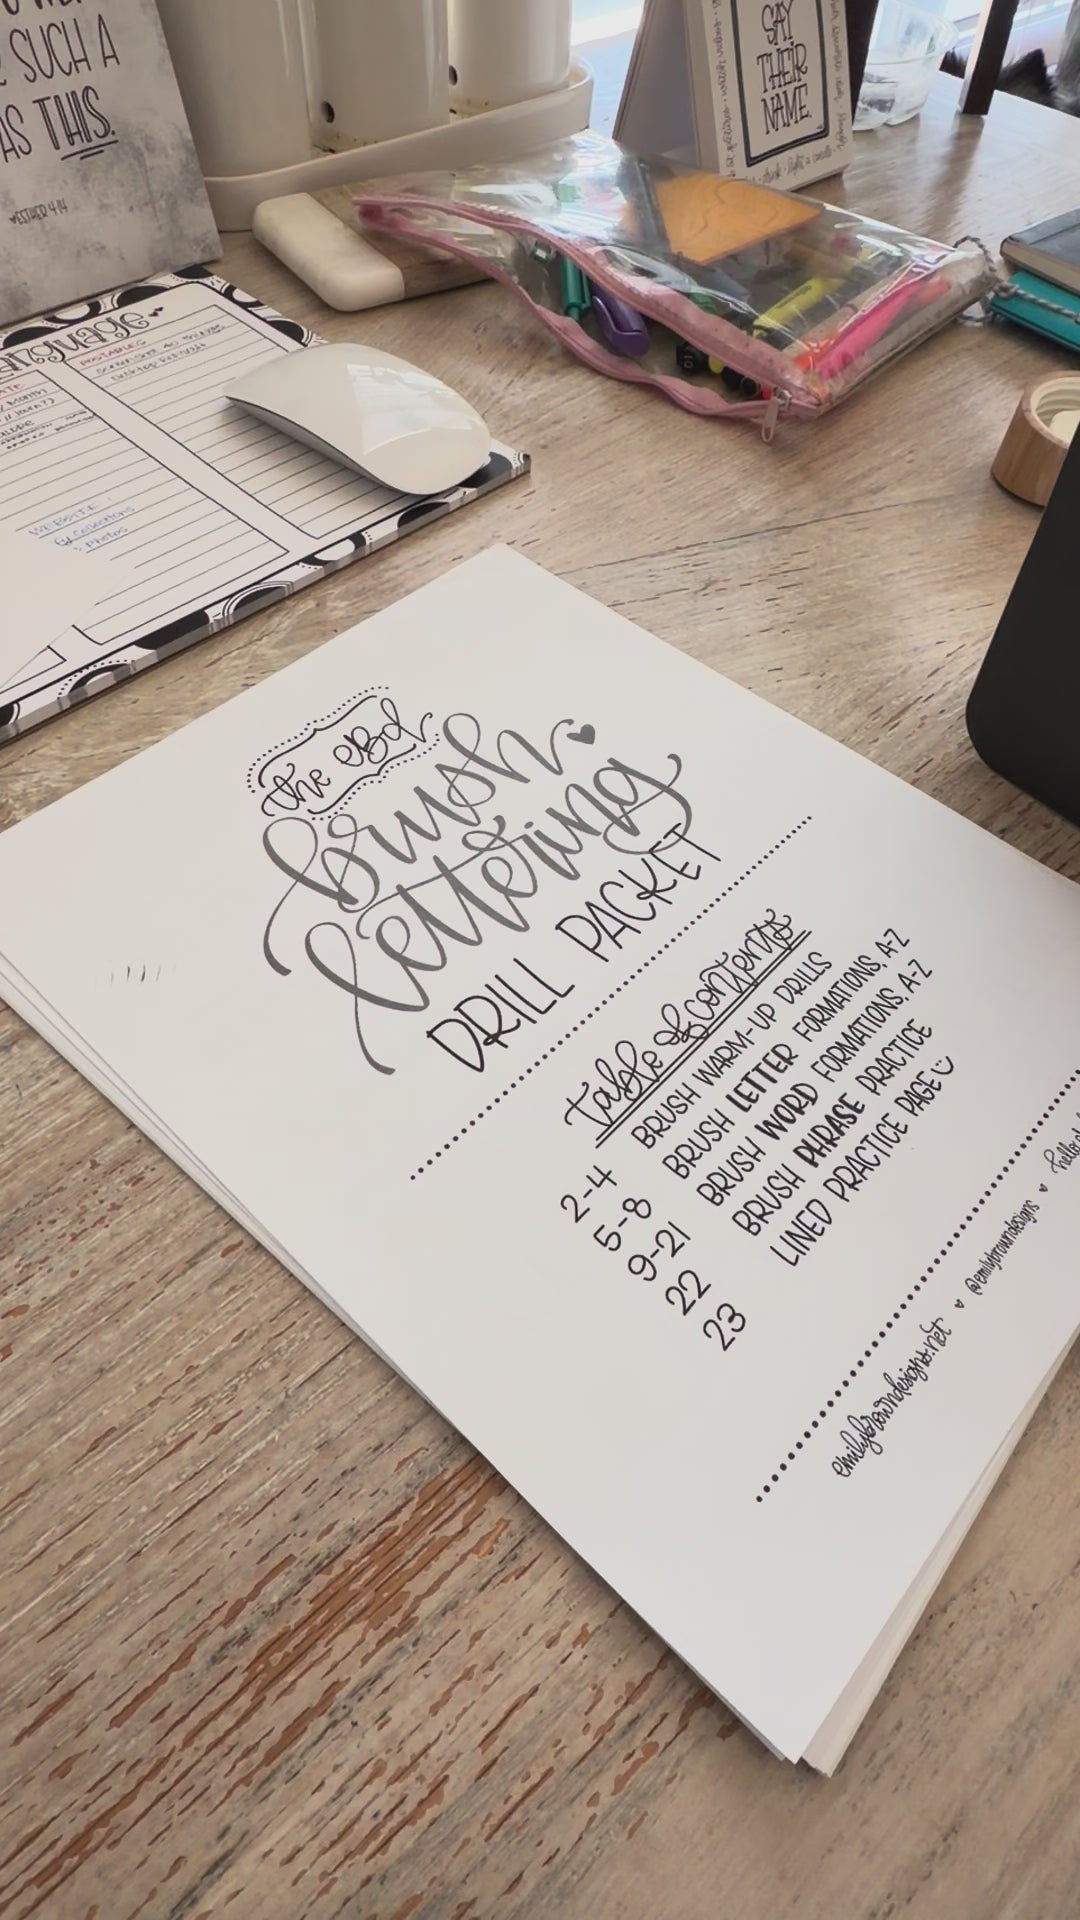 SUCH A
AS THIS.
♥ESTHER 4:14
SAY
THEIR
NAME
POSTABLES
WEBSITE
Collections
Photos
the eBd
brush
lettering
DRILL PACKET
table of contents
2-4 BRUSH WARM-UP DRILLS
5-8 BRUSH LETTER FORMATIONS, A-Z
9-21 BRUSH WORD FORMATIONS, A-Z
22 BRUSH PHRASE PRACTICE
23 LINED PRACTICE PAGE
emilybrowndesigns.net ♥ @emilybrowndesigns ♥